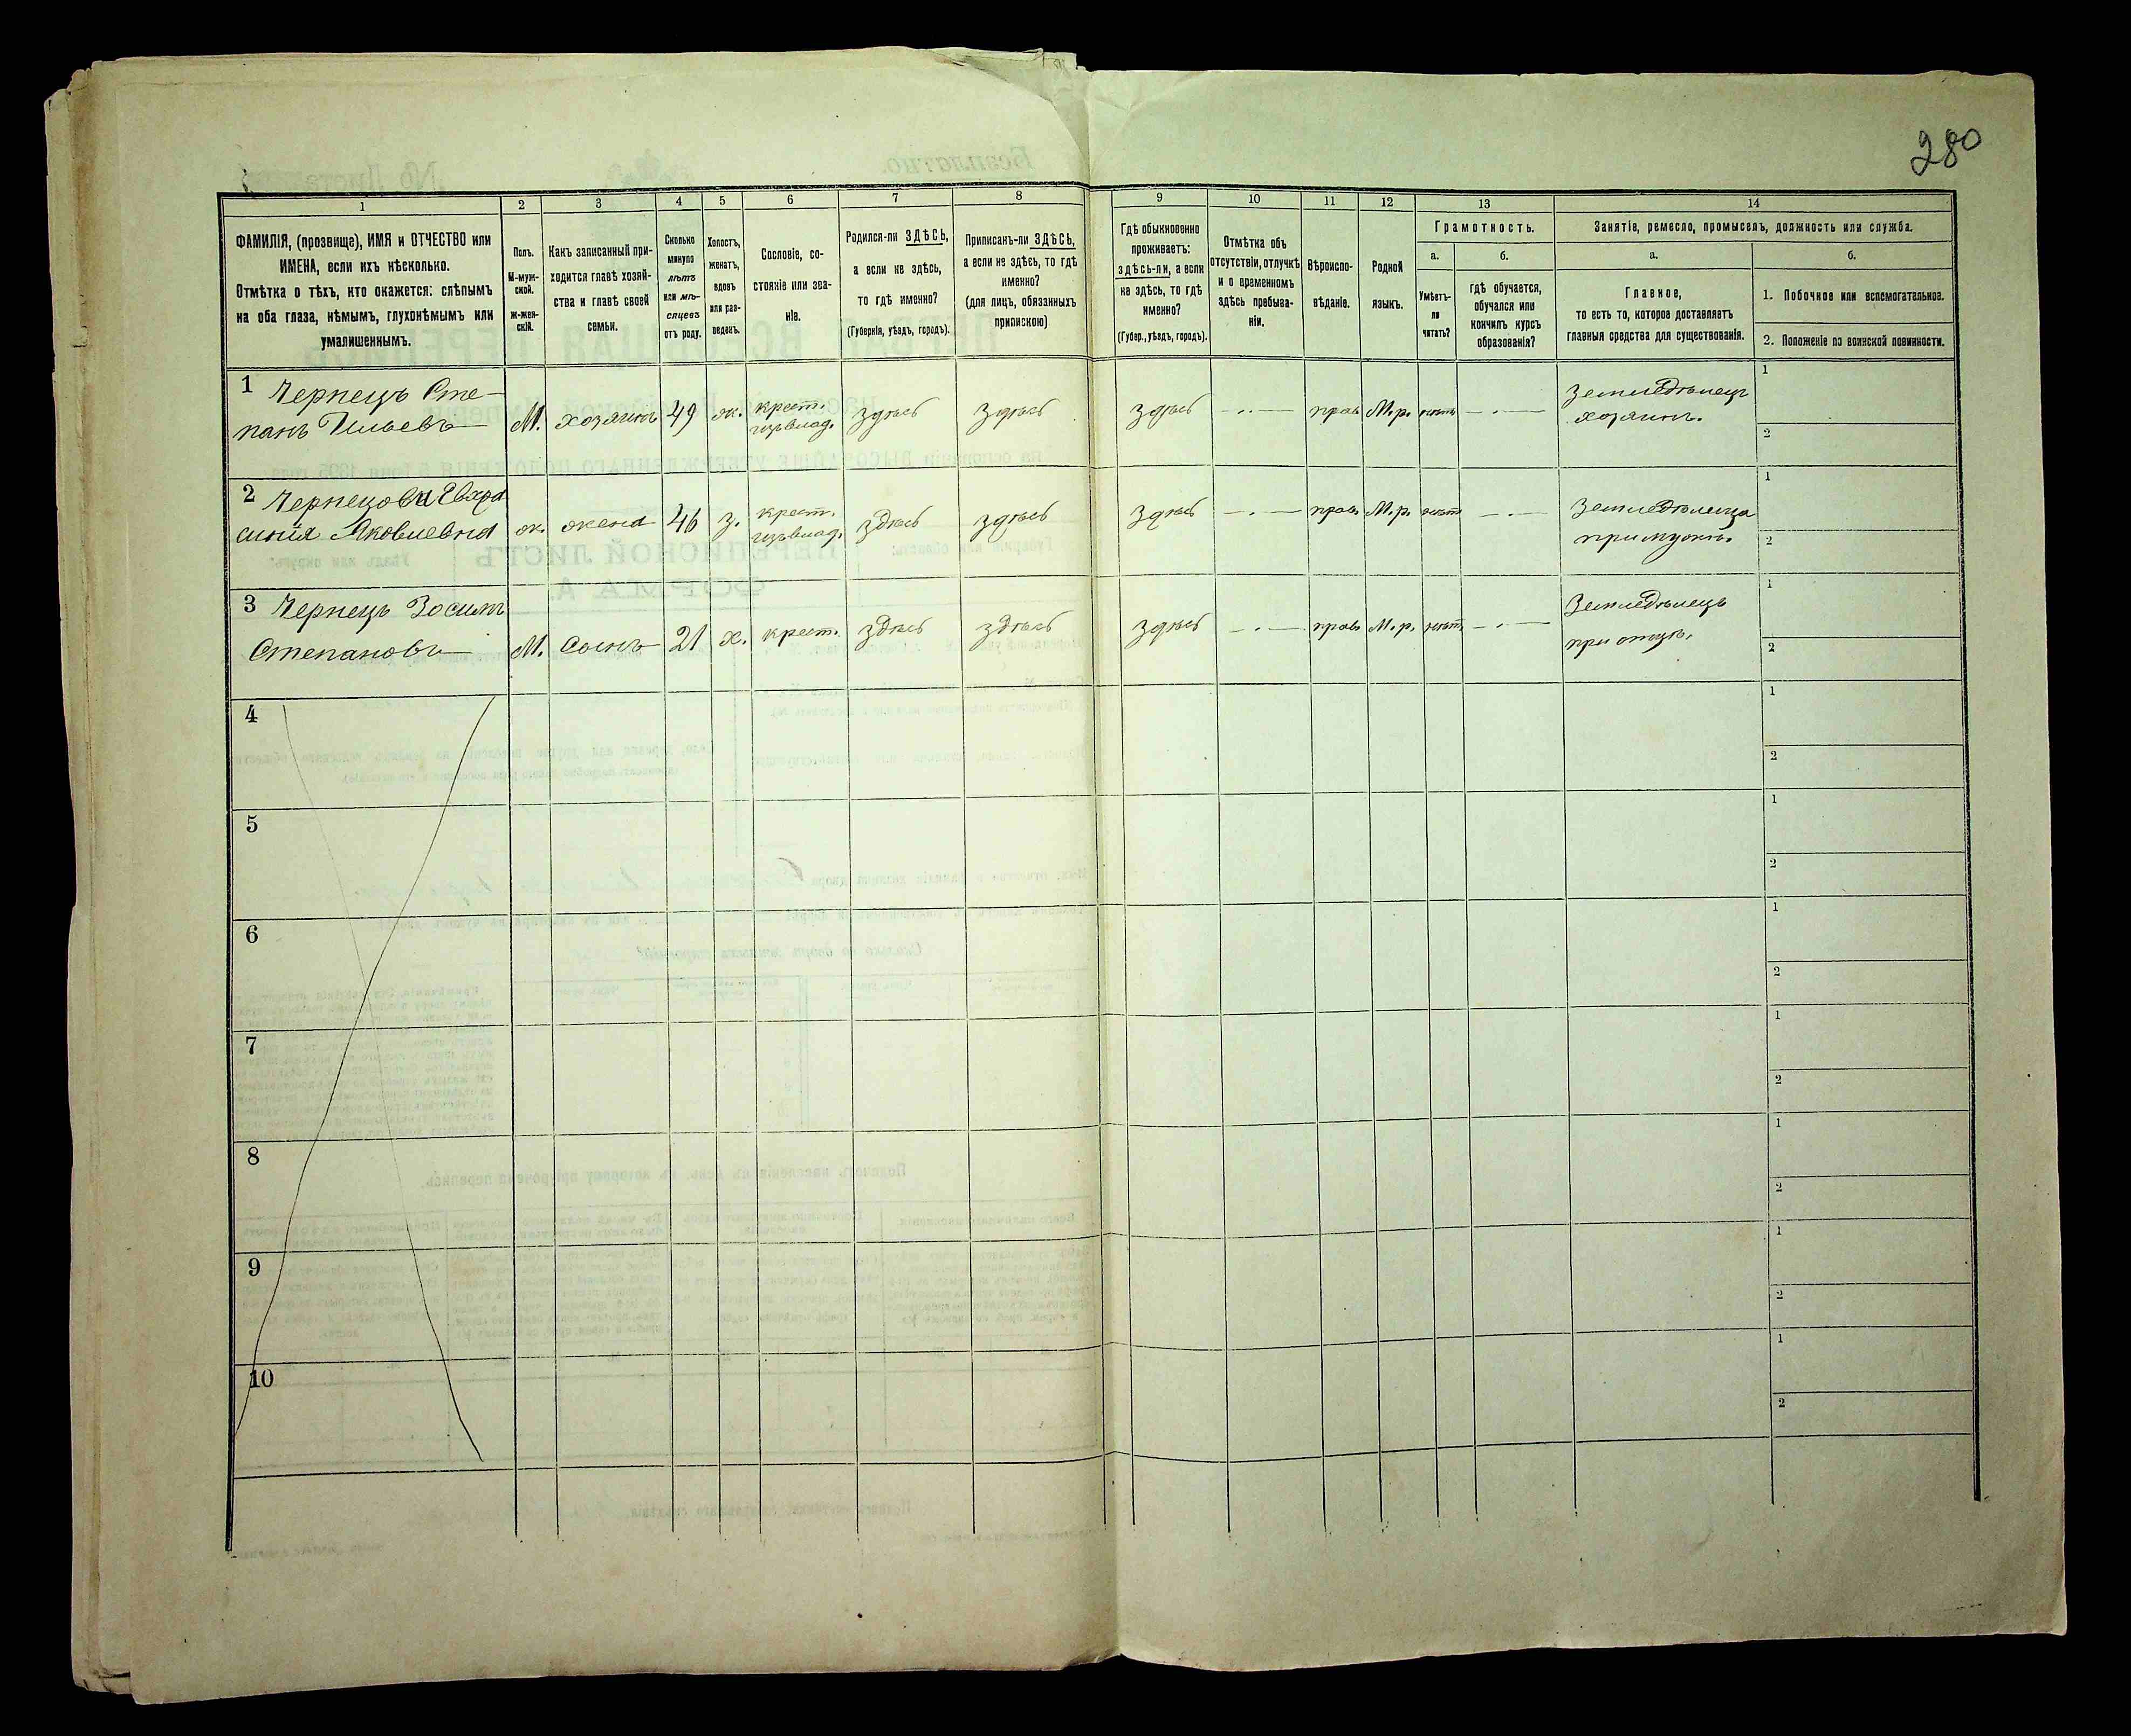 280
1 2 3 4 5 6 7 8 9 10 11 12 13 14
ФАМИЛІЯ, (прозвище), ИМЯ и ОТЧЕСТВО или
ИМЕНА, если ихъ нѣсколько.
Отмѣтка о тѣхъ, кто окажется: слѣпымъ
на оба глаза, нѣмымъ, глухонѣмымъ или
умалишеннымъ.
Полъ.
М-муж-
ской.
Ж-жен-
скій.
Какъ записанный при-
ходится главѣ хозяй-
ства и главѣ своей
семьи.
Сколько
минуло
лѣтъ
или мѣ-
сяцевъ
отъ роду.
Холостъ,
женатъ,
вдовъ
или раз-
веденъ.
Сословіе, со-
стояніе или зва-
ніе.
Родился-ли ЗДѢСЬ,
а если не здѣсь,
то гдѣ именно?
(Губернія, уѣздъ, городъ).
Приписанъ-ли ЗДѢСЬ,
а если не здѣсь, то гдѣ
именно?
(для лицъ, обязанныхъ
припискою)
Гдѣ обыкновенно
проживаетъ:
здѣсь-ли, а если
не здѣсь, то гдѣ
именно?
(Губер., уѣздъ, городъ).
Отмѣтка объ
отсутствіи, отлучкѣ
и о временномъ
здѣсь пребыва-
ніи.
Вѣроиспо-
вѣданіе.
Родной
языкъ.
Грамотность.
а.
б.
Умѣетъ-
ли
читать?
гдѣ обучается,
обучался или
кончилъ курсъ
образованія?
Занятіе, ремесло, промыселъ, должность или служба.
а.
б.
Главное,
то есть то, которое доставляетъ
главныя средства для существованія.
1. Побочное или вспомогательное.
2. Положеніе по воинской повинности.
1 Чернецъ Сте-
панъ Ильевъ М. хозяинъ 49 ж. крест.
изъ влад. здѣсь здѣсь здѣсь прав. М.р. нѣтъ Земледѣлецъ
хозяинъ.
1
2
2 Чернецова Евхра
синія Яковлевна ж. жена 46 з. крест.
изъ влад. здѣсь здѣсь здѣсь прав. М.р. нѣтъ Земледѣлица
при мужѣ.
1
2
3 Чернецъ Зосимъ
Степановъ М. Сынъ 21 х. крест. здѣсь здѣсь здѣсь прав. М.р. нѣтъ Земледѣлецъ
при отцѣ.
1
2
4
1
2
5
1
2
6
1
2
7
1
2
8
1
2
9
1
2
10
1
2